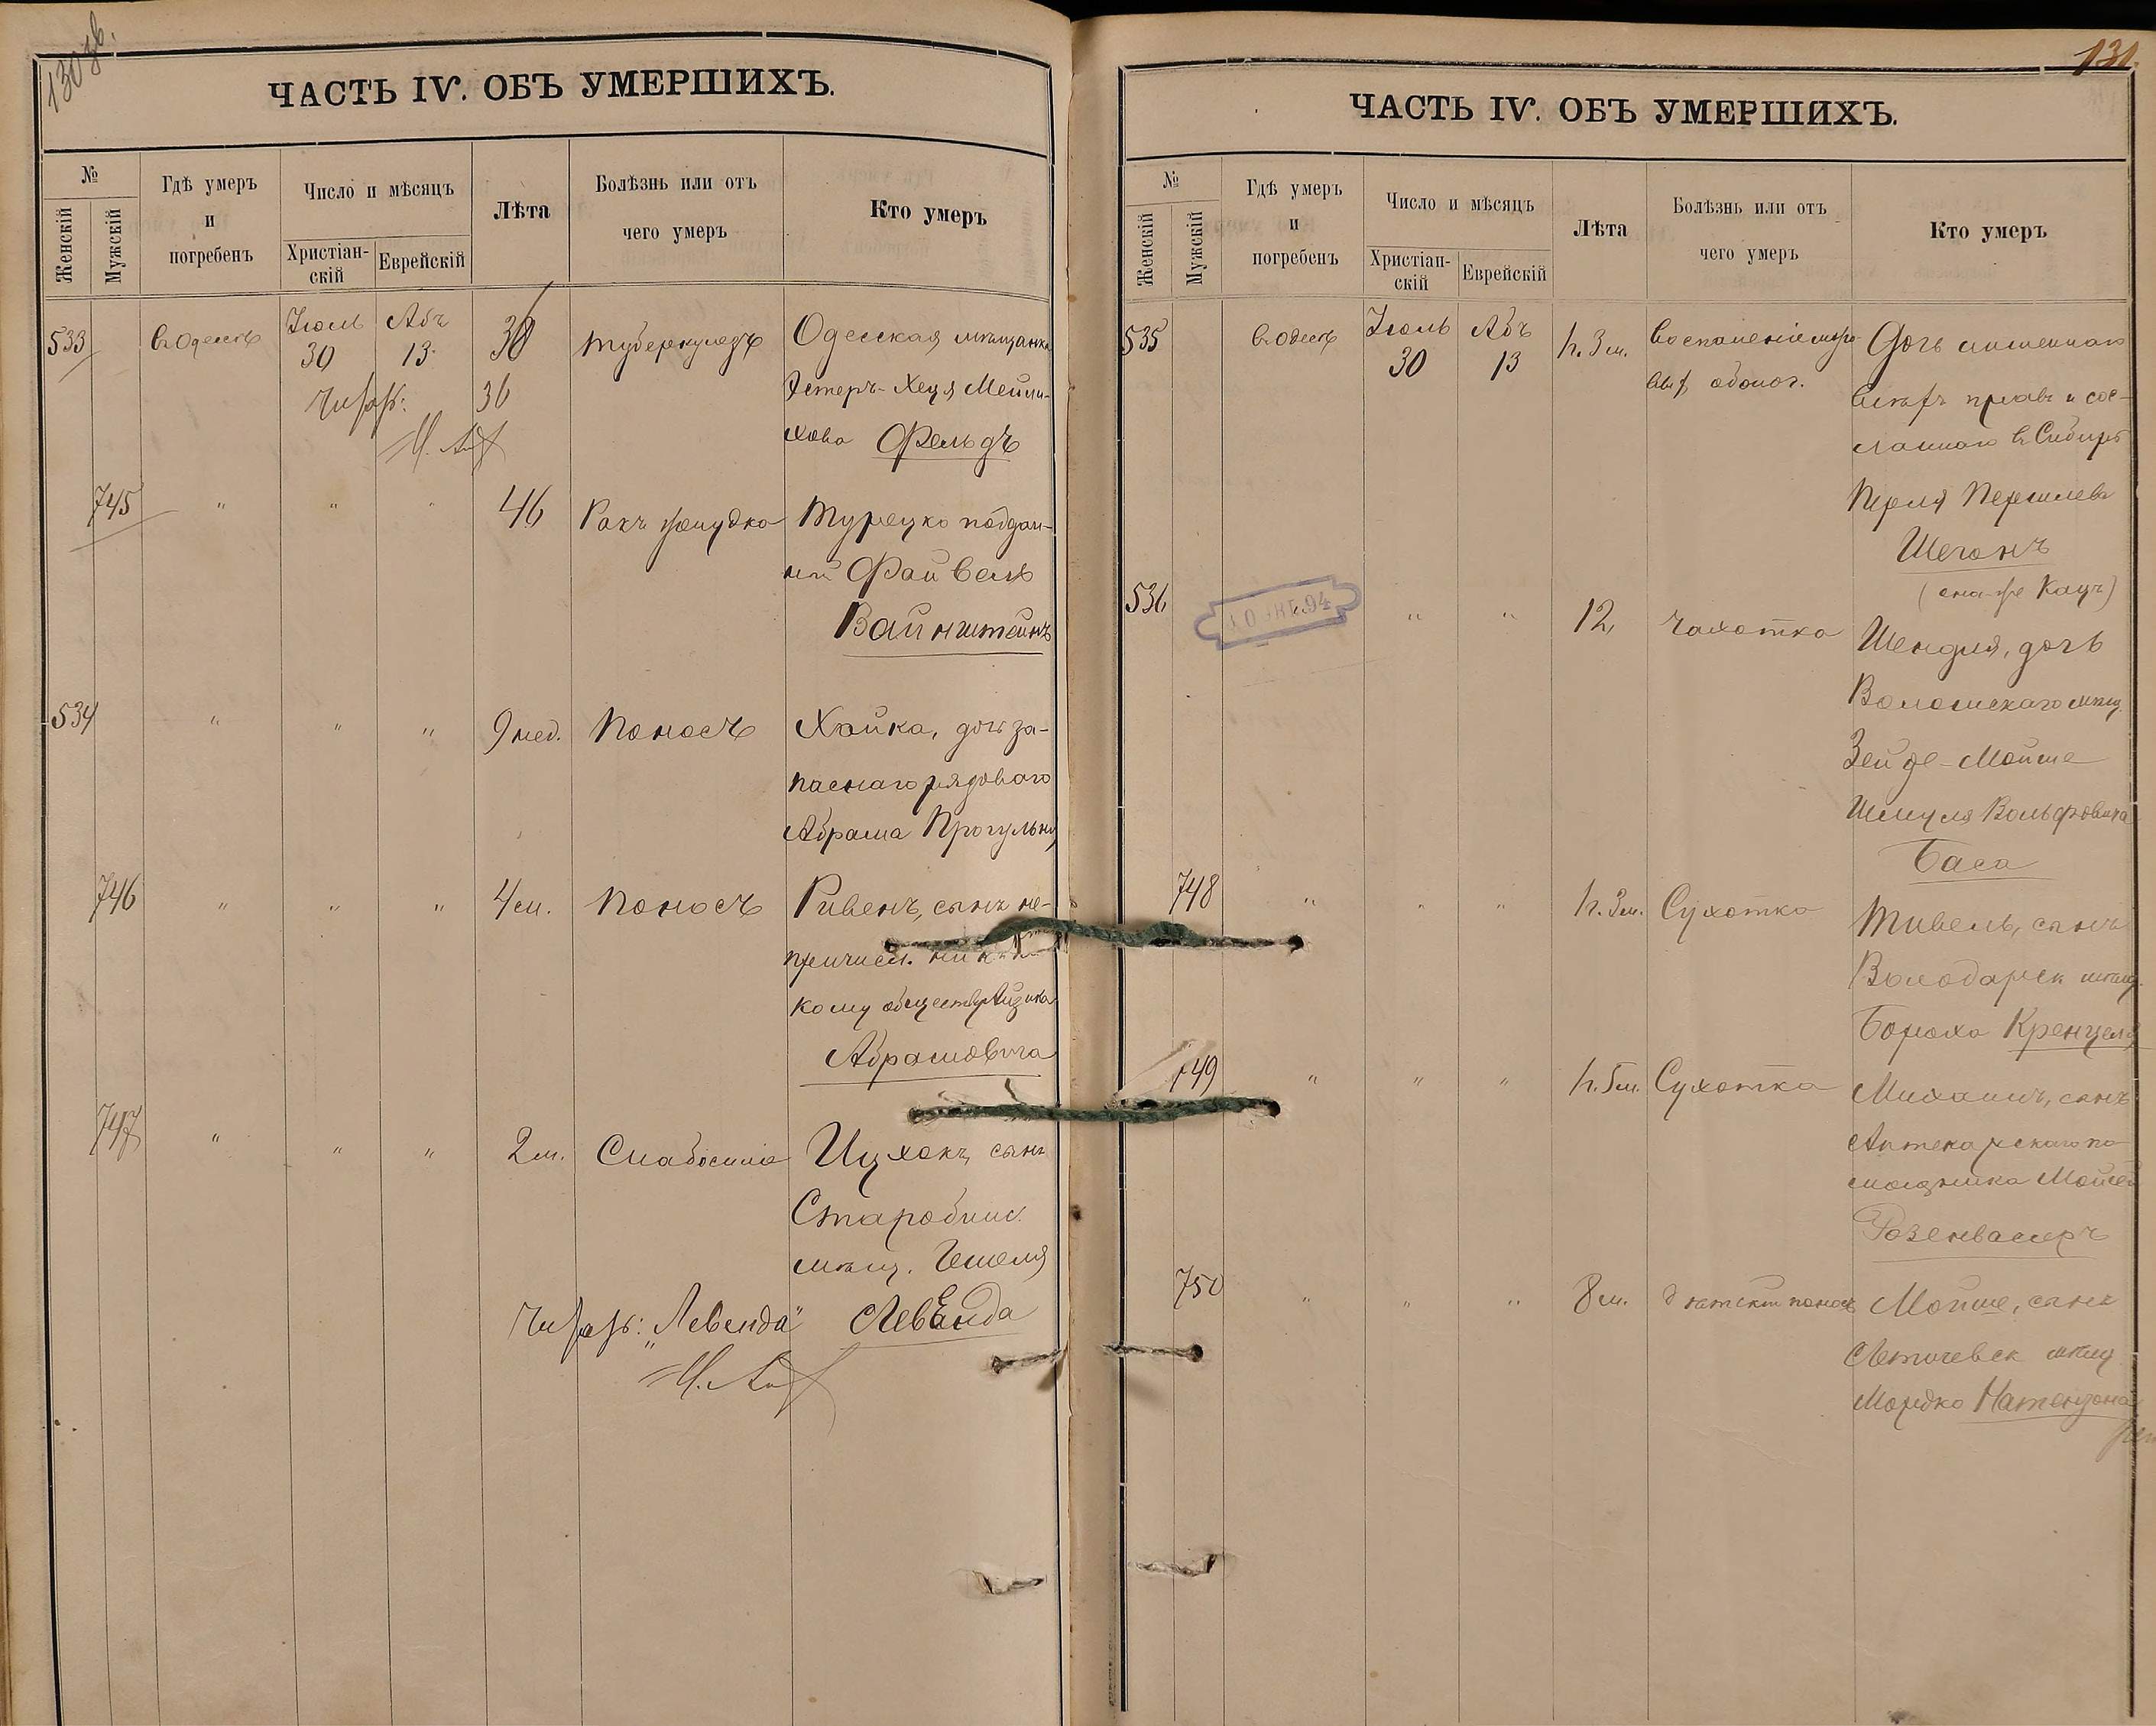 130 об.
ЧАСТЬ IV. ОБЪ УМЕРШИХЪ.
№
Женскій
Мужскій
Гдѣ умеръ
и
погребенъ
Число и мѣсяцъ
Христіан-
скій
Еврейскій
Лѣта
Болѣзнь или отъ
чего умеръ
Кто умеръ
533 въ Одессѣ Іюль 30 Абъ 13 36 туберкулезъ Одесская мѣщанка
36 Эстеръ-Хая Мейли-
хова Фельдъ
745 " " " 46 Ракъ желудка Турецко поддан-
ный Файвель
Вайнштейнъ
534 " " " 9 нед. Поносъ Хайка, дочь за-
паснаго рядоваго
Абрама
746 " " " 4 м. Поносъ Рувенъ, сынъ не-
причисл. ни къ
кому обществу Айзика
Абрамовича
747 " " " 2 м. Слабосиліе Ицхокъ, сынъ
Старобин.
мѣщ. Гешеля
"Левенда" Левенда
131.
ЧАСТЬ IV. ОБЪ УМЕРШИХЪ.
№
Женскій
Мужскій
Гдѣ умеръ
и
погребенъ
Число и мѣсяцъ
Христіан-
скій
Еврейскій
Лѣта
Болѣзнь или отъ
чего умеръ
Кто умеръ
535 въ Одессѣ Іюль 30 Абъ 13 1 г. 3 м. Воспаленіе мозго- Дочь лишеннаго
вых оболоч. всѣхъ правъ и сос-
ланнаго въ Сибирь
Перля
Шеганъ
(она-же Кацъ)
536 " " 12 Чахотка Шендля, дочь
мѣщ.
Зейде-Мойше
Шмуля Вольфовича
Баса
748 " " " 1 г. 3 м. Сухотка Тивель, сынъ
Володарск мѣщ.
Бороха Кренцеля
749 " " " 1 г. 5 м. Сухотка Михаилъ, сынъ
Аптекарскаго по-
мощника Мойсея
Розенвасеръ
750 " " " 8 м. Дѣтскій поносъ Мойше, сынъ
Летичевск мѣщ
Мордко Натензона